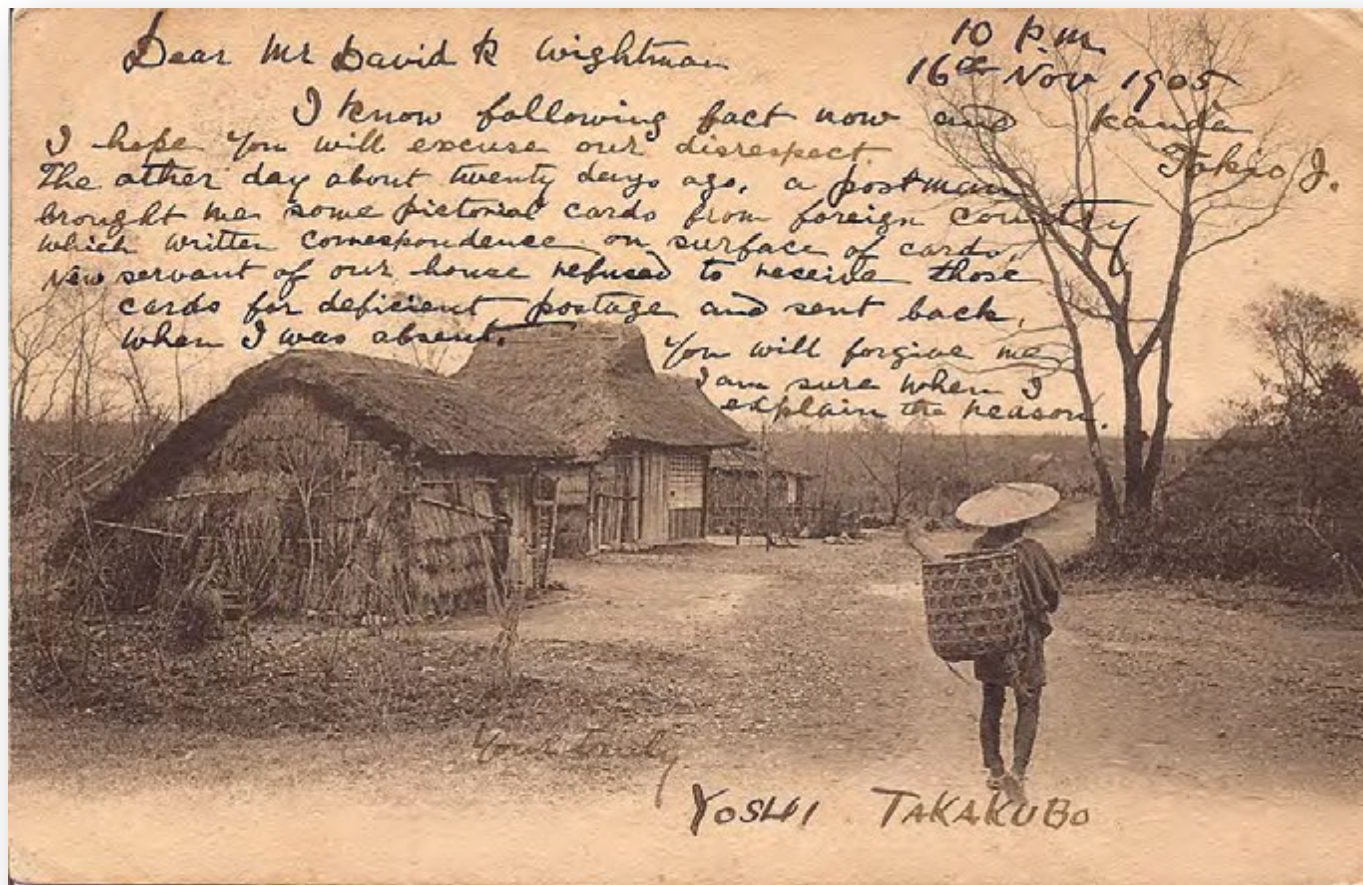 Dear Mr David R Wightman
10 P.m.
16th Nov 1905
Kanda
Tokio J.
I know following fact now and
I hope you will excuse our disrespect.
The other day about twenty days ago, a postman
brought me some pictorial cards from foreign country
which written correspondence on surface of cards,
New servant of our house refused to receive those
cards for deficient postage and sent back,
when I was absent.
You will forgive me
I am sure when I
explain the reason.
Yours truely
YOSHI TAKAKUBO